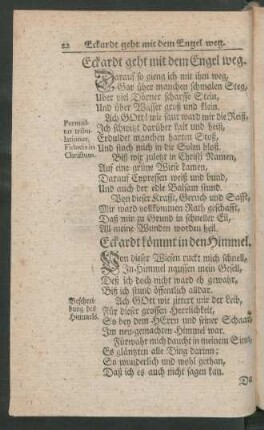 22 Eckardt geht mit dem Engel weg.
Eckardt geht mit dem Engel weg.
Darauf so gieng ich mit ihm weg,
Gar über manchen schmalen Steg,
Über viel Dörner scharffe Stein,
Und über Wasser groß und klein.
Ach GOtt! wie saur ward mir die Reiß,
Ich schwitzt darüber kalt und heiß,
Erduldet manchen harten Stoß,
Und stach mich in die Solen bloß.
Biß wir zuletzt in Christi Namen,
Auf eine grüne Wiese kamen,
Darauf Cypressen weiß und bund,
Und auch der edle Balsam stund.
Von dieser Krafft, Geruch und Safft,
Mir ward vollkommen Rath geschafft,
Daß mir zu Grund in schneller Eil,
All meine Wunden worden heil.
Per mul-
tas tribu-
lationes,
Fideris in
Christum.
Eckardt kömmt in den Himmel.
Von dieser Wiesen ruckt mich schnell,
In Himmel mein Gesell,
Daß ich doch nicht ward eh gewahr,
Biß ich stund öffentlich alldar.
Ach GOtt wie zittert mir der Leib,
Für dieser grossen Herrlichkeit,
So bey dem HErrn und seiner Schaar,
Im neu-gemachten Himmel war.
Fürwahr mich daucht in meinem Sinn,
Es gläntzten alle Ding darinn;
So wunderlich und wohl gethan,
Daß ich es auch nicht sagen kan.
Beschrei-
bung des
Himmels.
Da